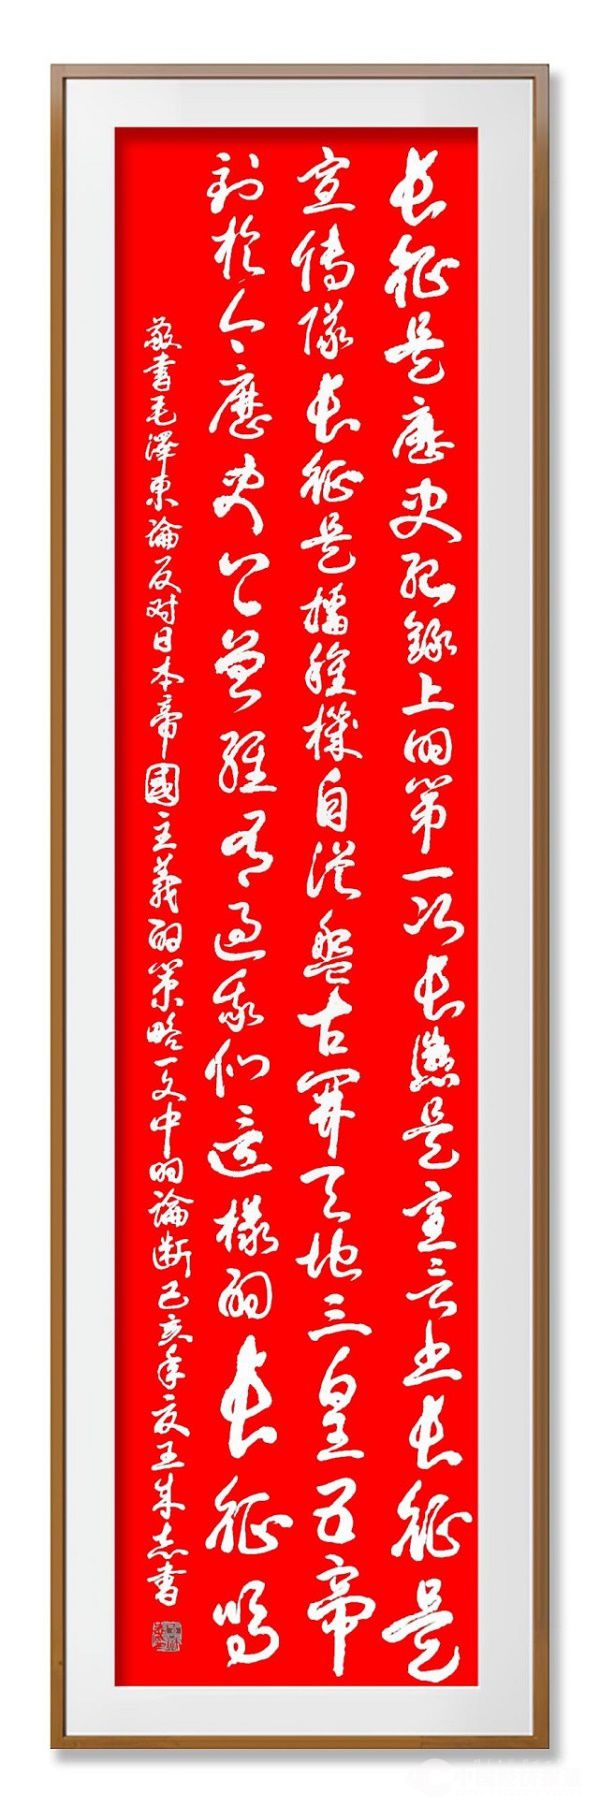 长征是歷史紀録上的第一次长征是宣言书长征是
宣傳隊长征是播種機自從盤古開天地三皇五帝
到於今歷史上曾經有過我们這樣的长征嗎
敬書毛澤東論反对日本帝國主義的策略一文中的論断己亥年夏王成志書